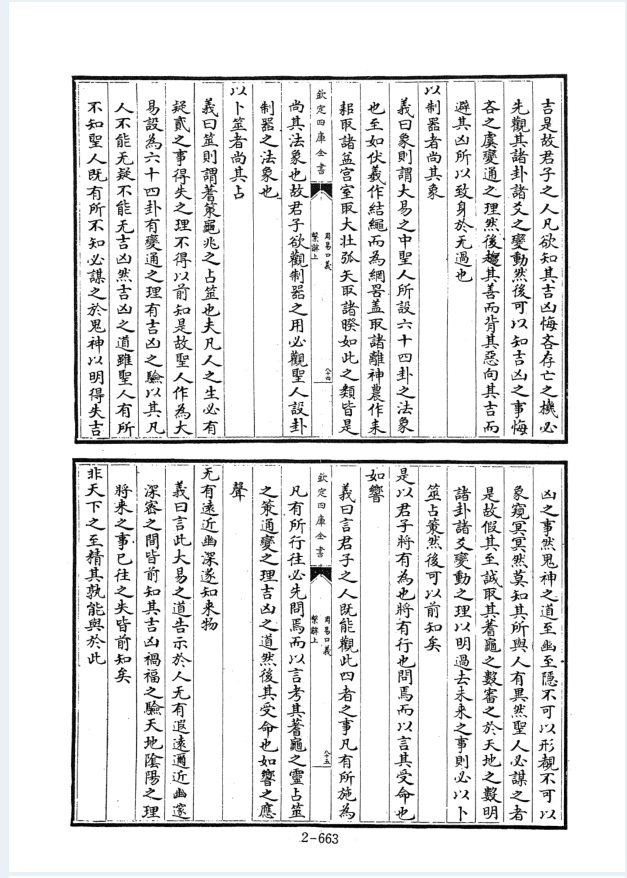 吉是故君子之人凡欲知其吉凶悔吝存亡之機必
先觀其諸卦諸爻之變動然後可以知吉凶之事悔
吝之虞變通之理然後趨其善而背其惡向其吉而
避其凶所以致身於无過也
以制器者尚其象
義曰象則謂大易之中聖人所設六十四卦之法象
也至如伏羲作結繩而為網罟盖取諸離神農作耒
耜取諸益宫室取大壮弧矢取諸睽如此之類皆是
欽定四庫全書
周易口義
繫辭上
八十四
尚其法象也故君子欲觀制器之用必觀聖人設卦
制器之法象也
以卜筮者尚其占
義曰筮則謂蓍策龜兆之占筮也夫凡人之生必有
疑貳之事得失之理不得以前知是故聖人作為大
易設為六十四卦有變通之理有吉凶之驗以其凡
人不能无疑不能无吉凶然吉凶之道雖聖人有所
不知聖人既有所不知必謀之於鬼神以明得失吉
凶之事然鬼神之道至幽至隠不可以形覩不可以
象窺冥冥然莫知其所與人有異然聖人必謀之者
是故假其至誠取其蓍龜之數審之於天地之數明
諸卦諸爻變動之理以明過去未來之事則必以卜
筮占策然後可以前知矣
是以君子將有為也將有行也問焉而以言其受命也
如響
義曰言君子之人既能觀此四者之事凡有所施為
欽定四庫全書
周易口義
繫辭上
八十五
凡有所行往必先問焉而以言考其蓍龜之靈占筮
之策通變之理吉凶之道然後其受命也如響之應
聲
无有遠近幽深遂知来物
義曰言此大易之道告示於人无有遐遠邇近幽邃
深宻之間皆前知其吉凶禍福之驗天地隂陽之理
將来之事已往之失皆前知矣
非天下之至精其孰能與於此
2-663